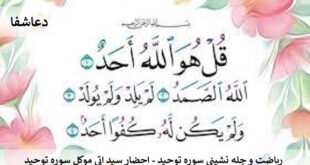 دعاشفا
بسم الله الرحمن الرحيم
قُلْ هُوَ اللَّهُ أَحَدٌ ۝١
اللَّهُ الصَّمَدُ ۝٢ لَمْ يَلِدْ وَلَمْ يُولَدْ ۝٣
وَلَمْ يَكُن لَّهُ كُفُوًا أَحَدٌ ۝٤
ریاضت و چله نشینی سوره توحید - احضار سید ابی موکل سوره توحید